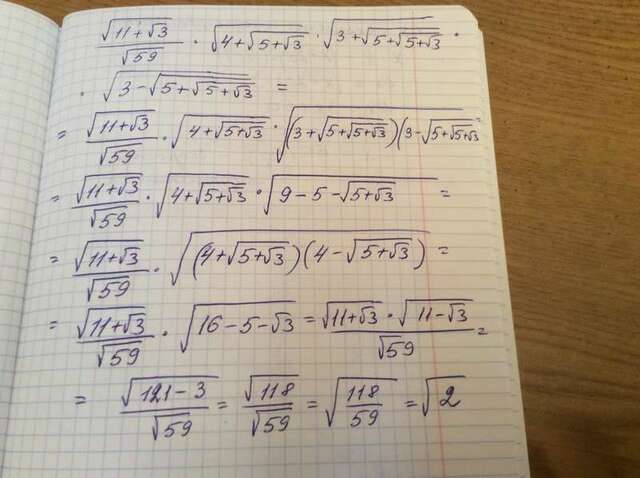 √(11+√3)/√59 · √(4+√(5+√3)) · √(3+√(5+√(5+√3))) ·
· √(3-√(5+√(5+√3))) =
= √(11+√3)/√59 · √(4+√(5+√3)) · √((3+√(5+√(5+√3)))(3-√(5+√(5+√3)))) =
= √(11+√3)/√59 · √(4+√(5+√3)) · √(9-5-√(5+√3)) =
= √(11+√3)/√59 · √((4+√(5+√3))(4-√(5+√3))) =
= √(11+√3)/√59 · √(16-5-√3) = √(11+√3) · √(11-√3)/√59 =
= √(121-3)/√59 = √118/√59 = √(118/59) = √2